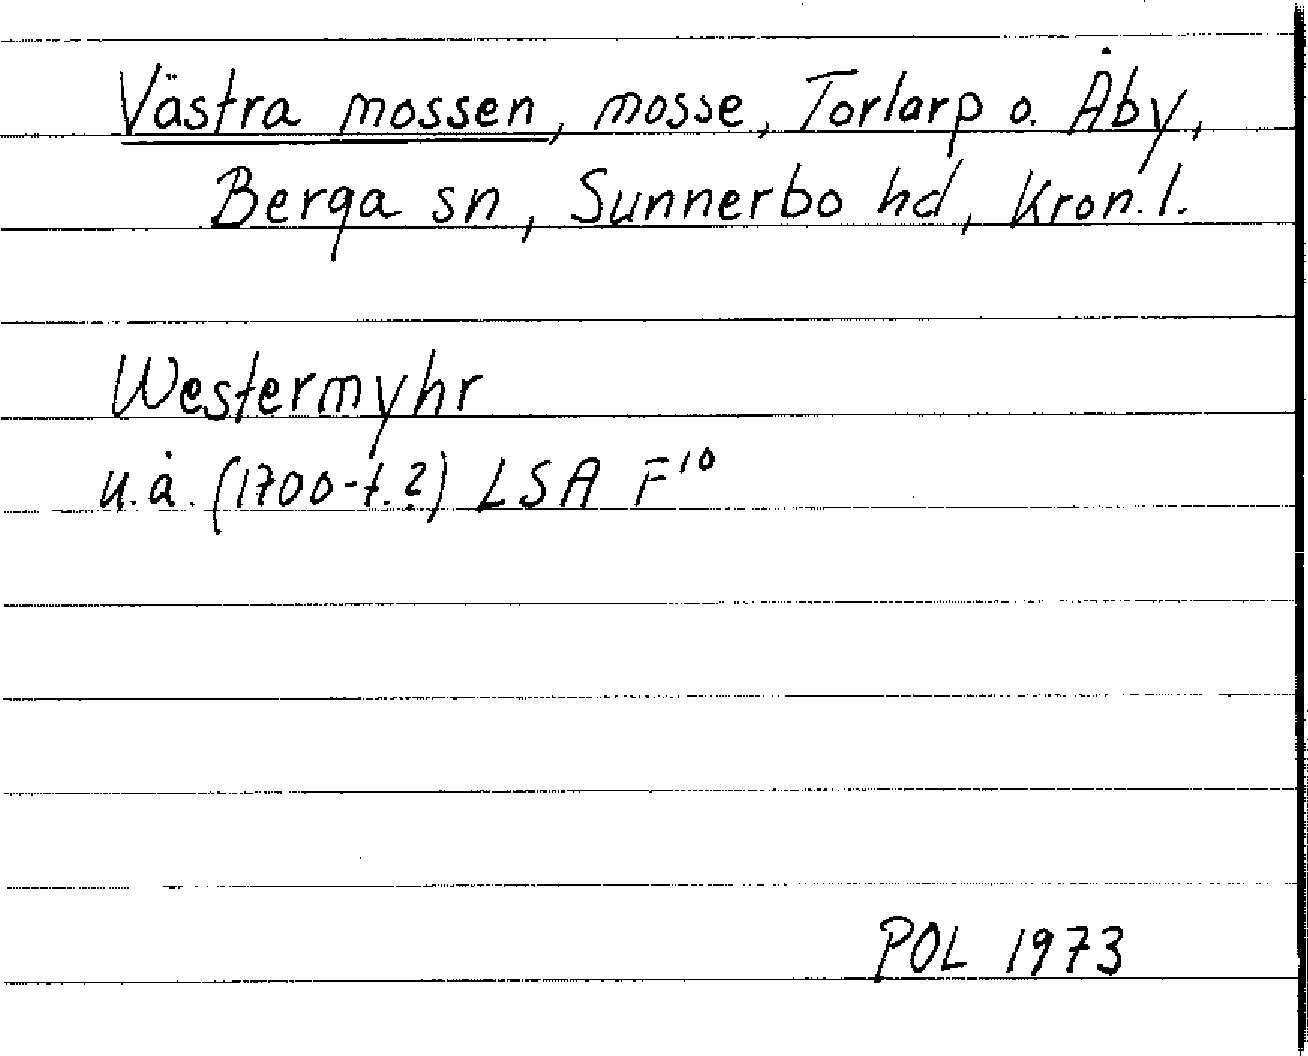 Västra mossen, mosse, Torlarp o. Åby,
Berga sn, Sunnerbo hd, Kron. l.
Westermyhr
u.å. (1700-t.?) LSA F¹⁰
POL 1973